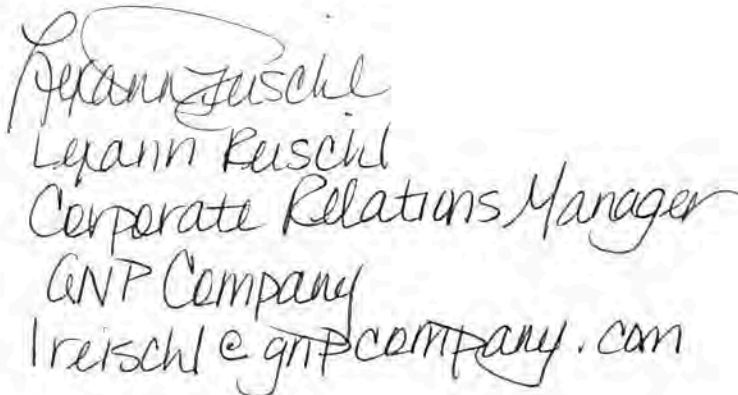 Lexann Reischl
Lexann Reischl
Corporate Relations Manager
GNP Company
lreischl@gnpcompany.com